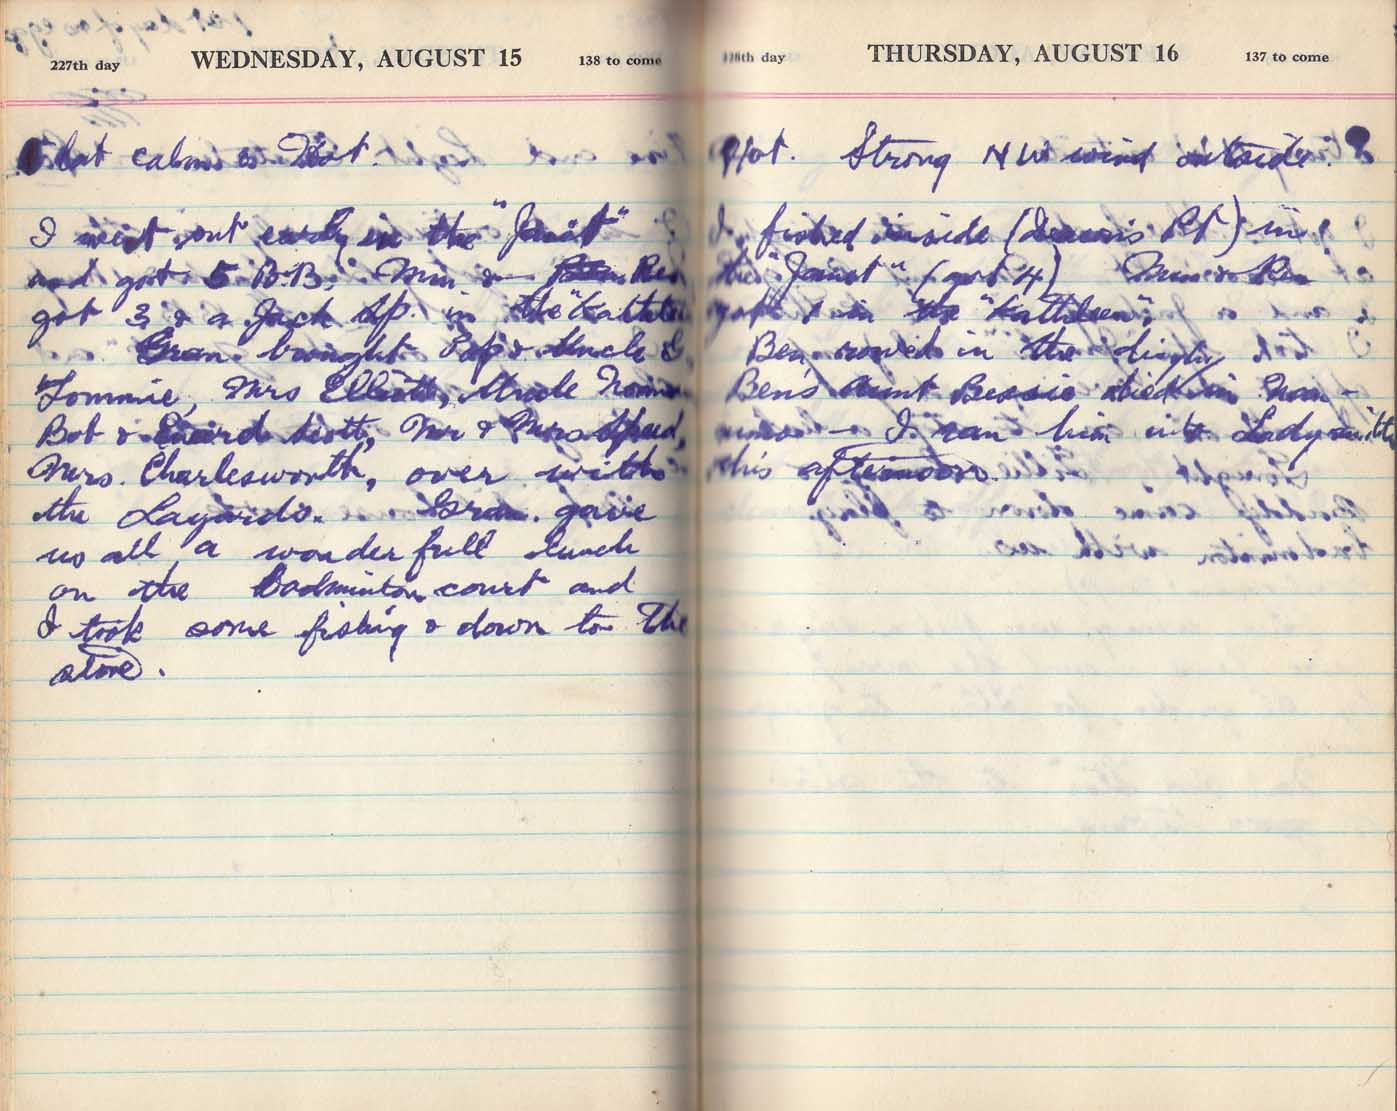 227th day
WEDNESDAY, AUGUST 15
138 to come
Flat calm & Hot.
I went out early in the "Janet"
and got 5 B.B. Mim & Ben
got 3 & a Jack Sp. in the "Kathleen
Gran brought Pop & Uncle
Tommie, Mrs Elliott, Uncle
Bob & Scott, Mr & Mrs Speed,
Mrs. Charlesworth, over with
the Layards. Gran. gave
us all a wonderfull lunch
on the Badminton court and
I took some fishing & down to the
store.
228th day
THURSDAY, AUGUST 16
137 to come
Hot. Strong N W wind outside.
I fished inside ( Pt) in
the "Janet" (got 4) Mim & Ben
got 1 in the "Kathleen",
Ben rowed in the dinghy
Ben's Aunt Bessie died in Nan-
aimo - I ran him into Ladysmith
this afternoon.